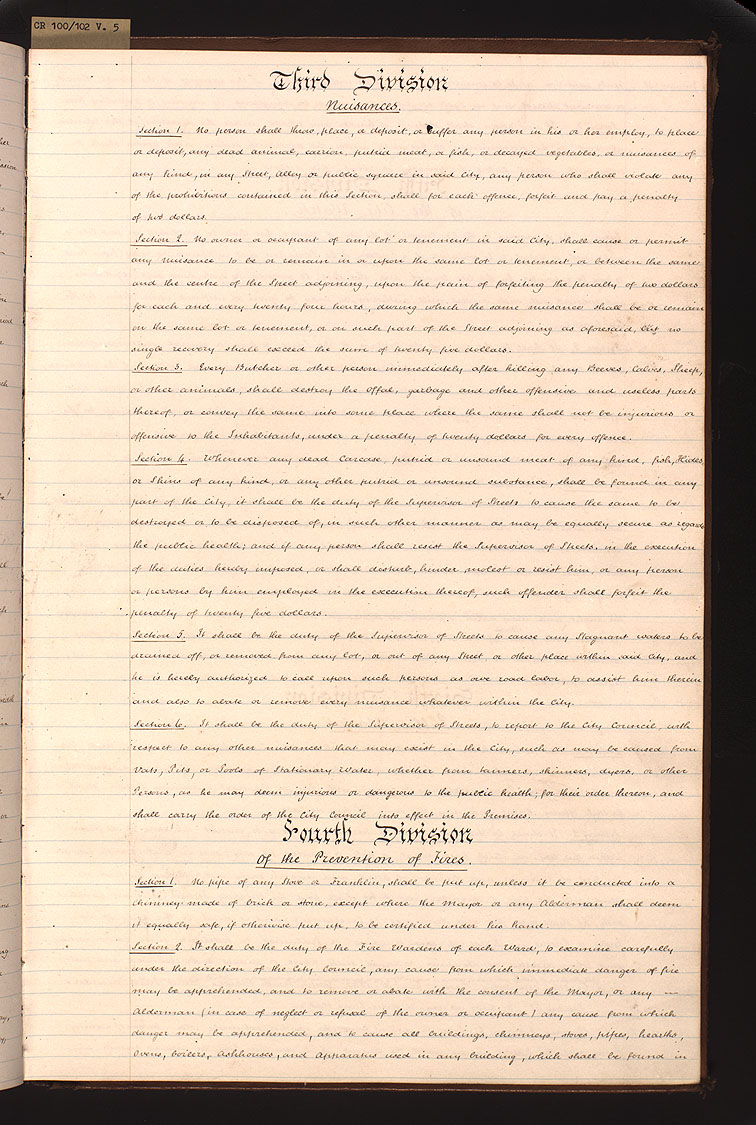 CR 100/102 V. 5
Third Division
Nuisances.
Section 1. No person shall throw, place, or deposit, or suffer any person in his or her employ, to place
or deposit, any dead animal, carrion, putrid meat, or fish, or decayed vegetables, or nuisances of
any kind, in any Street, Alley or public square in said City, any person who shall violate any
of the prohibitions contained in this Section, shall for each offence, forfeit and pay a penalty
of two dollars.
Section 2. No owner or occupant of any lot or tenement in said City, shall cause or permit
any nuisance to be or remain in or upon the same lot or tenement, or between the same
and the centre of the Street adjoining, upon the pain of forfeiting the penalty of two dollars
for each and every twenty four hours, during which the same nuisance shall be or remain
on the same lot or tenement, or on such part of the Street adjoining as aforesaid, but no
single recovery shall exceed the sum of twenty five dollars.
Section 3. Every Butcher or other person immediately after killing any Beeves, Calves, Sheep,
or other animals, shall destroy the Offal, garbage and other offensive and useless parts
thereof, or convey the same into some place where the same shall not be injurious or
offensive to the Inhabitants, under a penalty of twenty dollars for every offence.
Section 4. Whenever any dead Carcase, putrid or unsound meat of any kind, fish, Hides,
or Skins of any kind, or any other putrid or unsound substance, shall be found in any
part of the City, it shall be the duty of the Supervisor of Streets to cause the same to be
destroyed or to be disposed of, in such other manner as may be equally secure as regards
the public health; and if any person shall resist the Supervisor of Streets, in the execution
of the duties hereby imposed, or shall disturb, hinder, molest or resist him, or any person
or persons by him employed in the execution thereof, such offender shall forfeit the
penalty of twenty five dollars.
Section 5. It shall be the duty of the Supervisor of Streets to cause any Stagnant waters to be
drained off, or removed from any lot, or out of any Street or other place within said City, and
he is hereby authorized to call upon such persons as owe road labor, to assist him therein
and also to abate or remove every nuisance whatever within the City.
Section 6. It shall be the duty of the Supervisor of Streets, to report to the City Council, with
respect to any other nuisances that may exist in the City, such as may be caused from
Vats, Pits, or Pools of Stationary Water, whether from tanners, skinners, dyers, or other
Persons, as he may deem injurious or dangerous to the public health; for their order thereon, and
shall carry the order of the City Council into effect in the Premises.
Fourth Division
Of the Prevention of Fires.
Section 1. No pipe of any Stove or Franklin, shall be put up, unless it be conducted into a
chimney made of brick or stone, except where the Mayor or any Alderman shall deem
it equally safe, if otherwise put up, to be certified under his hand.
Section 2. It shall be the duty of the Fire Wardens of each Ward, to examine carefully
under the direction of the City Council, any cause from which immediate danger of fire
may be apprehended, and to remove or abate with the consent of the Mayor, or any —
Alderman (in case of neglect or refusal of the owner or occupant) any cause from which
danger may be apprehended, and to cause all buildings, chimneys, stoves, pipes, hearths,
Ovens, boilers, Ashhouses, and Apparatus used in any building, which shall be found in